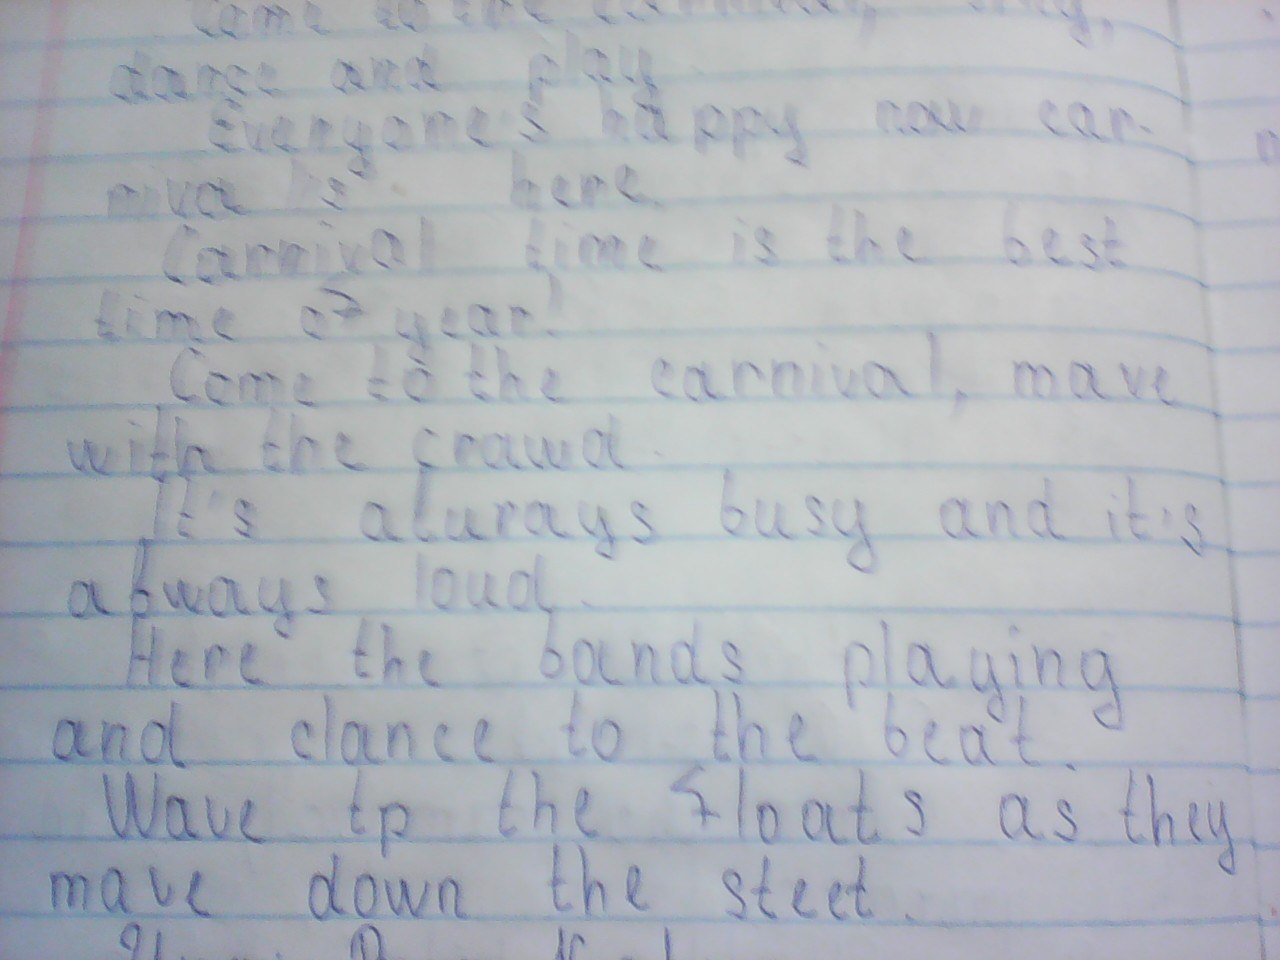 Come to the carnival, sing,
dance and play
Everyone's happy now car-
niva is here.
Carnival time is the best
time of year!
Come to the carnival, mave
with the crawd.
It's alurays busy and it's
always loud.
Here the bands playing
and dance to the beat.
Wave tp the floats as they
mave down the steet.